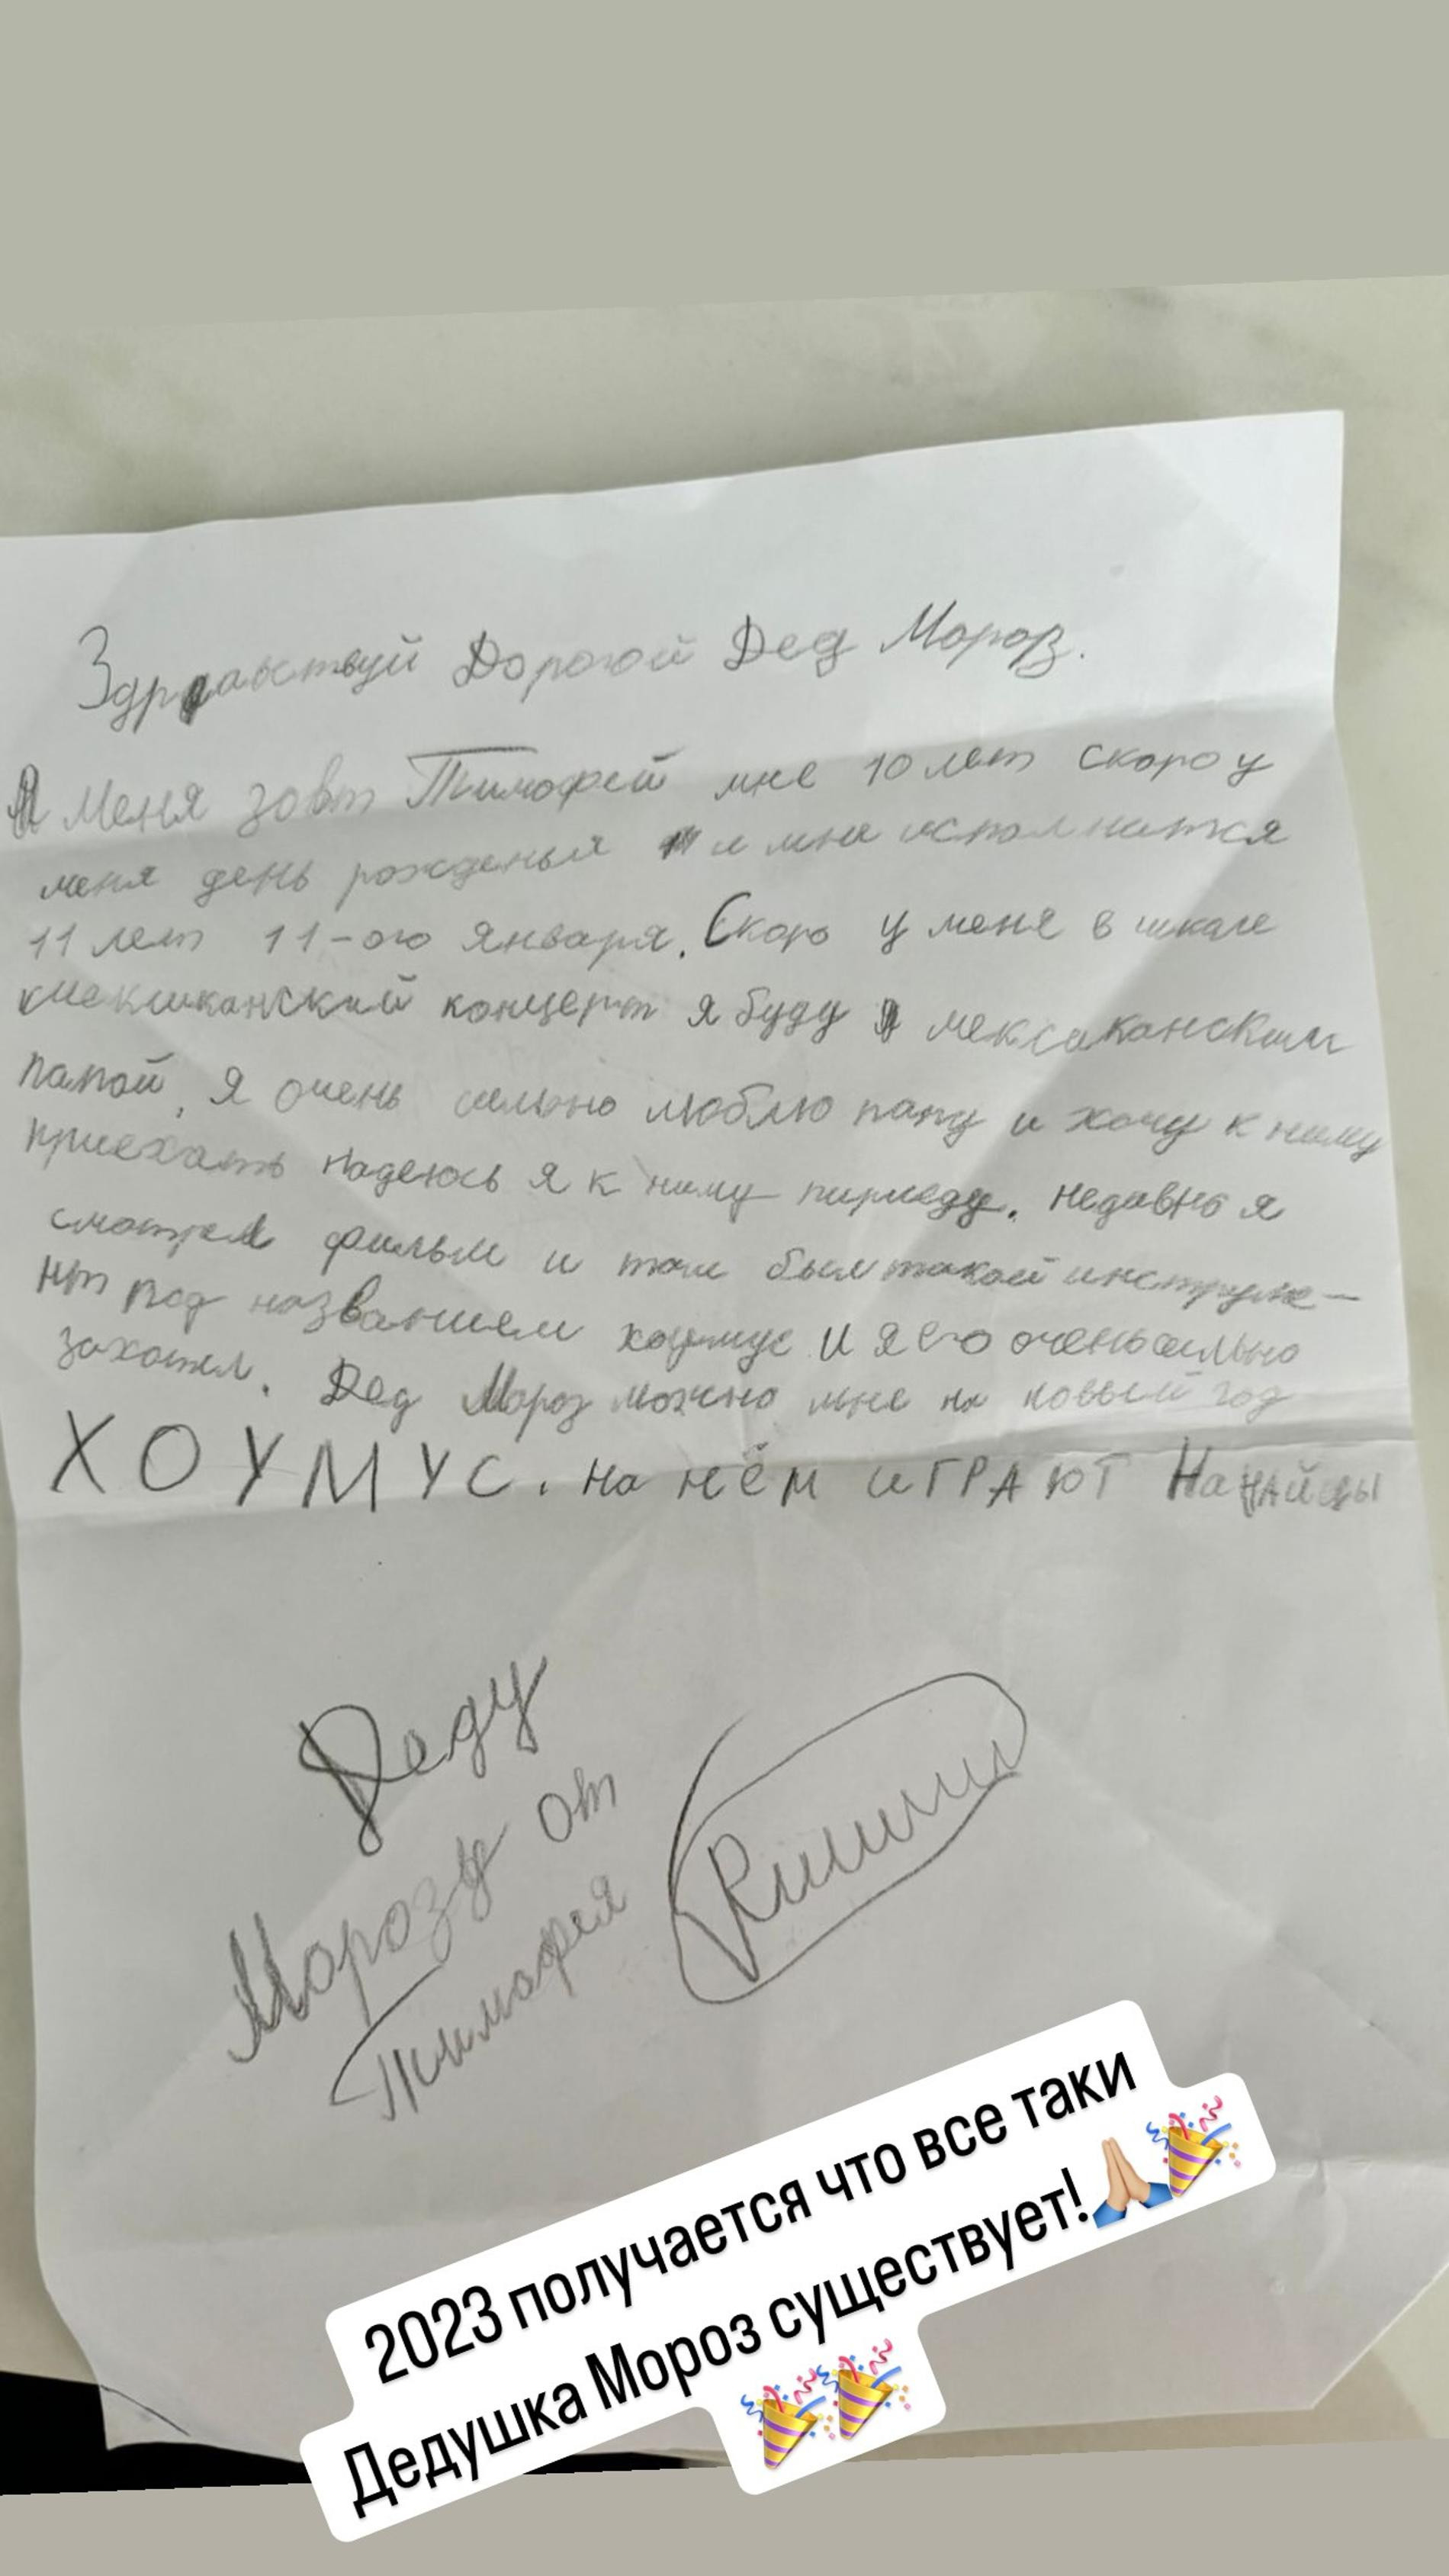 Здраавствуй Дорогой Дед Мороз.
Я Меня зовт Тимофей мне 10 лет скоро у
меня день рожденья и мне исполнится
11 лет 11-ого января. Скоро у меня в шкале
киекиканский концерт я буду мексиканским
папой, я очень сильно люблю папу и хочу к нему
приехать надеюсь я к нему приеду. недавно я
смотрел фильм и там был такой инструме-
нт под названием хоумус и я его очень сильно
захотел. Дед Мороз можно мне на новый год
ХОУМУС. На нём играют Нанайцы
Деду
Морозу от
Тимофея
2023 получается что все таки
Дедушка Мороз существует!🙏🏼🎉
🎉🎉